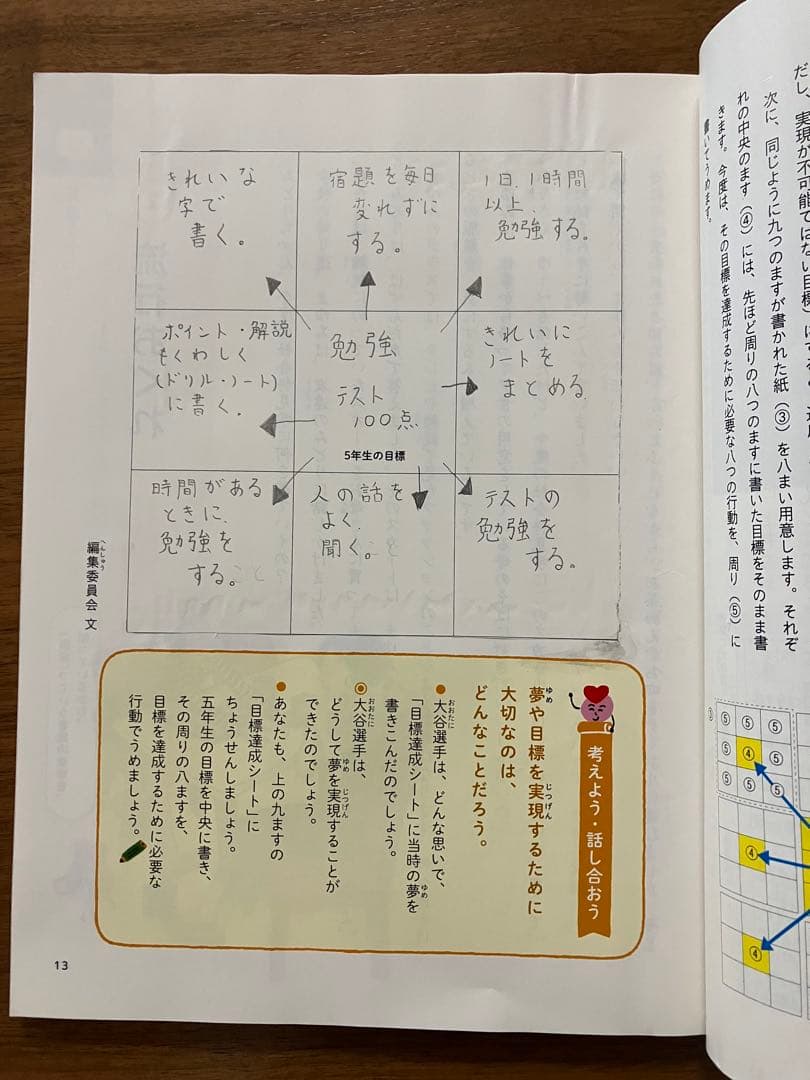 だし、実現が不可能ではない目標）にする
次に、同じように九つのますが書かれた紙（③）を八まい用意します。それぞ
れの中央のます（④）には、先ほど周りの八つのますに書いた目標をそのまま書
きます。今度は、その目標を達成するために必要な八つの行動を、周り（⑤）に
書いてうめます。
⑤ ⑤ ⑤
⑤ ④ ⑤
⑤ ⑤ ⑤
④
④
③
きれいな
字で
書く。
宿題を毎日
変れずに
する。
1日、1時間
以上、
勉強する。
ポイント・解説
もくわしく
(ドリル・ノート)
に書く。
勉強
テスト
100点
5年生の目標
きれいに
ノートを
まとめる
時間がある
ときに、
勉強を
する。
人の話を
よく、
聞く。
テストの
勉強を
する。
編集委員会 文
へんしゅう
考えよう・話し合おう
夢や目標を実現するために
ゆめ じつげん
大切なのは、
どんなことだろう。
●大谷選手は、どんな思いで、
おおたに
「目標達成シート」に当時の夢を
ゆめ
書きこんだのでしょう。
◎大谷選手は、
おおたに
どうして夢を実現することが
ゆめ じつげん
できたのでしょう。
●あなたも、上の九ますの
「目標達成シート」に
ちょうせんしましょう。
五年生の目標を中央に書き、
その周りの八ますを、
目標を達成するために必要な
行動でうめましょう。
13